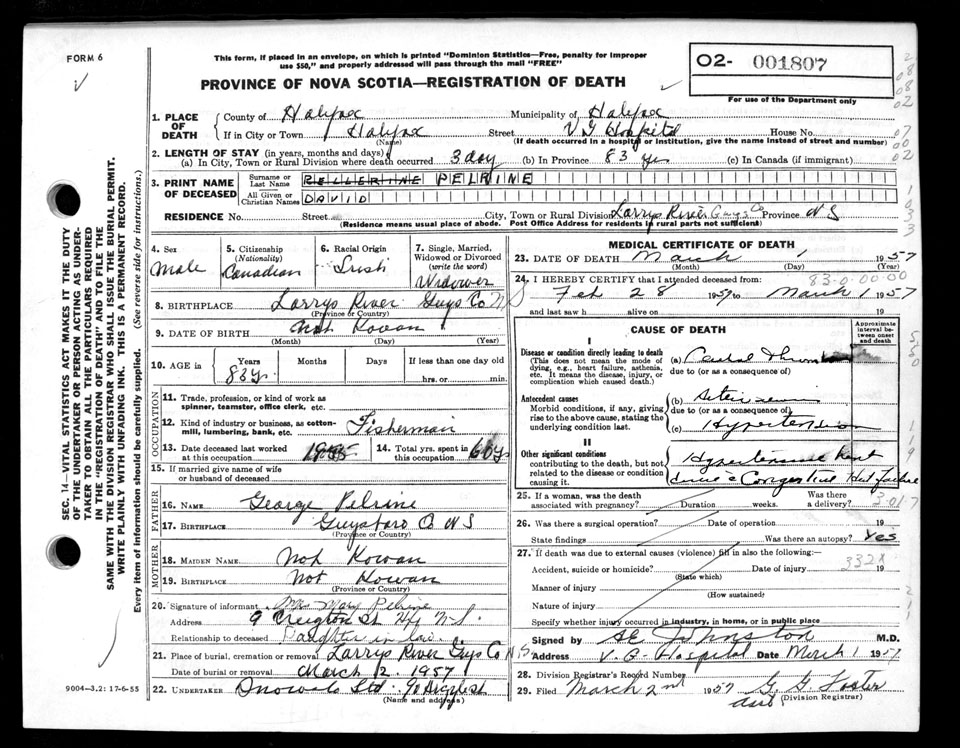 FORM 6
This form, if placed in an envelope, on which is printed "Dominion Statistics—Free, penalty for improper
use $50," and properly addressed will pass through the mail "FREE"
PROVINCE OF NOVA SCOTIA—REGISTRATION OF DEATH
02- 001807
For use of the Department only
SEC. 14—VITAL STATISTICS ACT MAKES IT THE DUTY
OF THE UNDERTAKER OR PERSON ACTING AS UNDER-
TAKER TO OBTAIN ALL THE PARTICULARS REQUIRED
IN THE "REGISTRATION OF DEATH" AND TO FILE THE
SAME WITH THE DIVISION REGISTRAR WHO SHALL ISSUE THE BURIAL PERMIT.
WRITE PLAINLY WITH UNFADING INK. THIS IS A PERMANENT RECORD.
Every item of information should be carefully supplied. (See reverse side for instructions.)
1. PLACE OF DEATH
County of Halifax Municipality of Halifax
If in City or Town Halifax Street V G Hospital House No.
(Name) (If death occurred in a hospital or institution, give the name instead of street and number)
2. LENGTH OF STAY (in years, months and days)
(a) In City, Town or Rural Division where death occurred 3 day (b) In Province 83 yrs (c) In Canada (if immigrant)
3. PRINT NAME OF DECEASED
Surname or Last Name PELLERINE PELRINE
All Given or Christian Names DAVID
RESIDENCE No. Street City, Town or Rural Division Larrys River Guys Co Province N S
Residence means usual place of abode. Post Office Address for residents in rural parts not sufficient)
4. Sex
Male
5. Citizenship
(Nationality)
Canadian
6. Racial Origin
Irish
7. Single, Married,
Widowed or Divorced
(write the word)
Widower
8. BIRTHPLACE Larrys River Guys Co N S
(Province or Country)
9. DATE OF BIRTH Not Kowan
(Month) (Day) (Year)
10. AGE in Years Months Days If less than one day old
83 yr. hrs. or min.
OCCUPATION
11. Trade, profession, or kind of work as
spinner, teamster, office clerk, etc.
12. Kind of industry or business, as cotton-
mill, lumbering, bank, etc. Fisherman
13. Date deceased last worked
at this occupation
14. Total yrs. spent in
this occupation 60 yrs
15. If married give name of wife
or husband of deceased
FATHER
16. NAME George Pelrine
17. BIRTHPLACE Guysboro Co N S
(Province or Country)
MOTHER
18. MAIDEN NAME Not Kowan
19. BIRTHPLACE Not Kowan
(Province or Country)
20. Signature of informant Mrs Mary Pelrine
Address 9 Creighton St Hfx N-S.
Relationship to deceased Daughter in law.
21. Place of burial, cremation or removal Larrys River Guys Co N.S.
Date of burial or removal March 2. 1957
22. UNDERTAKER Snows Ltd 90 Argyle St
(Name and address)
9004-3.2: 17-6-55
MEDICAL CERTIFICATE OF DEATH
23. DATE OF DEATH March 1 1957
(Month) (Day) (Year)
83-0-00-00
24. I HEREBY CERTIFY that I attended deceased from:
Feb 28 1957 to March 1 1957
and last saw h alive on 19
CAUSE OF DEATH
Approximate
interval be-
tween onset
and death
I
Disease or condition directly leading to death
(This does not mean the mode of
dying, e.g., heart failure, asthenia,
etc. It means the disease, injury, or
complication which caused death.)
(a)
due to (or as a consequence of)
Antecedent causes
Morbid conditions, if any, giving
rise to the above cause, stating the
underlying condition last.
(b)
due to (or as a consequence of)
(c) Hypertension
II
Other significant conditions
contributing to the death, but not
related to the disease or condition
causing it.
Hypertensive Heart
Congestive Heart failure
25. If a woman, was the death
associated with pregnancy? Duration weeks. Was there
a delivery?
3-017
26. Was there a surgical operation? Date of operation 19
State findings Was there an autopsy? Yes
27. If death was due to external causes (violence) fill in also the following:—
Accident, suicide or homicide? Date of injury 19
332X
(State which)
Manner of injury
(How sustained)
Nature of injury
Specify whether injury occurred in industry, in home, or in public place
Signed by Johnston M.D.
Address V. G- Hospital Date March 1 1957
28. Division Registrar's Record Number
29. Filed March 2nd 1957 G. G. Foster
(Division Registrar)